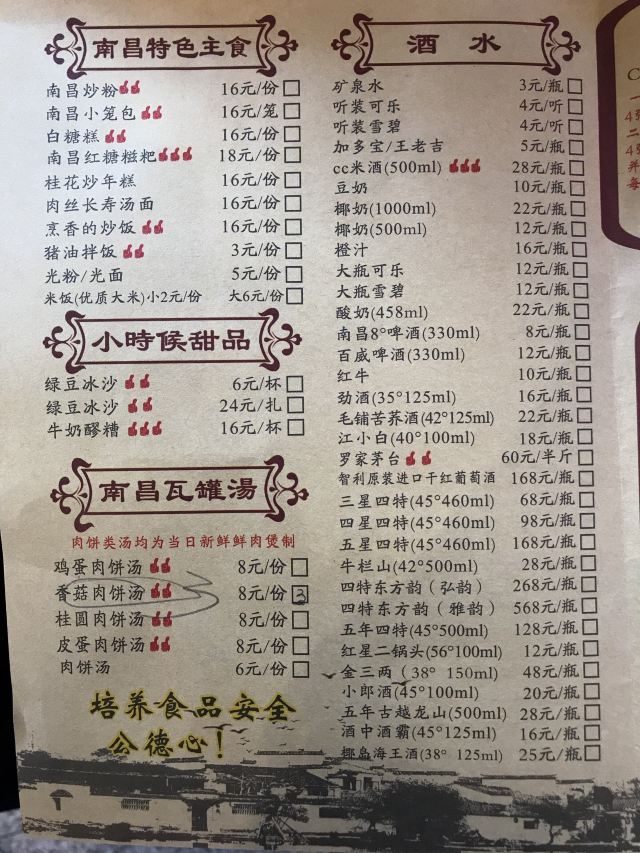 南昌特色主食
南昌炒粉 16元/份
南昌小笼包 16元/笼
白糖糕 16元/份
南昌红糖糍粑 18元/份
桂花炒年糕 16元/份
肉丝长寿汤面 16元/份
烹香的炒饭 16元/份
猪油拌饭 3元/份
光粉/光面 5元/份
米饭(优质大米)小2元/份 大6元/份
小時候甜品
绿豆冰沙 6元/杯
绿豆冰沙 24元/扎
牛奶醪糟 16元/杯
南昌瓦罐湯
肉饼类汤均为当日新鲜鲜肉煲制
鸡蛋肉饼汤 8元/份
香菇肉饼汤 8元/份 3
桂圆肉饼汤 8元/份
皮蛋肉饼汤 8元/份
肉饼汤 6元/份
培养食品安全
公德心！
酒水
矿泉水 3元/瓶
听装可乐 4元/听
听装雪碧 4元/听
加多宝/王老吉 5元/瓶
cc米酒(500ml) 28元/瓶
豆奶 10元/瓶
椰奶(1000ml) 22元/瓶
椰奶(500ml) 12元/瓶
橙汁 16元/瓶
大瓶可乐 12元/瓶
大瓶雪碧 12元/瓶
酸奶(458ml) 22元/瓶
南昌8°啤酒(330ml) 8元/瓶
百威啤酒(330ml) 12元/瓶
红牛 10元/瓶
劲酒(35°125ml) 16元/瓶
毛铺苦荞酒(42°125ml) 22元/瓶
江小白(40°100ml) 18元/瓶
罗家茅台 60元/半斤
智利原装进口干红葡萄酒 168元/瓶
三星四特(45°460ml) 68元/瓶
四星四特(45°460ml) 98元/瓶
五星四特(45°460ml) 168元/瓶
牛栏山(42°500ml) 28元/瓶
四特东方韵（弘韵） 268元/瓶
四特东方韵（雅韵） 568元/瓶
五年四特(45°500ml) 128元/瓶
红星二锅头(56°100ml) 12元/瓶
金三两（38° 150ml） 48元/瓶
小郎酒(45°100ml) 20元/瓶
五年古越龙山(500ml) 28元/瓶
酒中酒霸(45°125ml) 16元/瓶
椰岛海王酒(38° 125ml) 25元/瓶